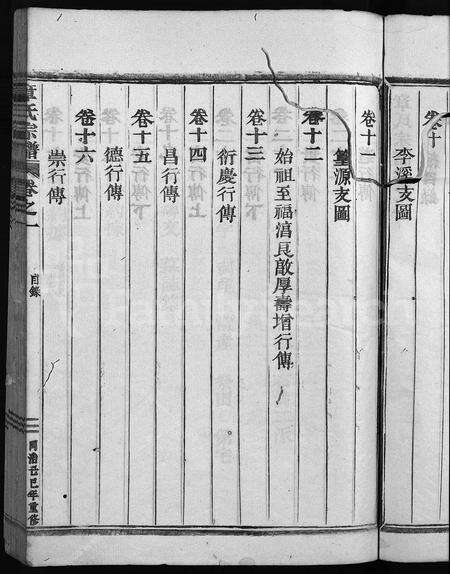 卷十
李溪支圖
卷十一
篁源支圖
卷十二
始祖至福滀良敵厚壽增行傳
卷十三
衍慶行傳
卷十四
昌行傳
卷十五
德行傳
卷十六
崇行傳
章氏宗譜
卷之一
目錄
同治己巳年重修